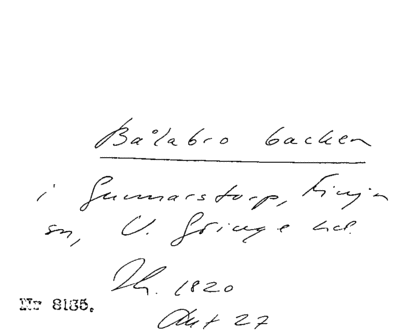 Bålabro backen
i Gunnarstorp, Finja
sn, V. Göinge hd.
Th. 1820
Akt 27
Nr 8135.